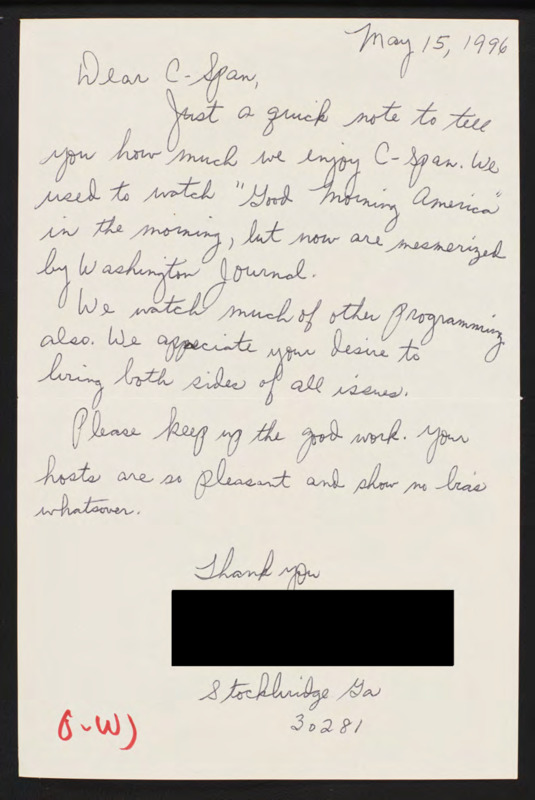 May 15, 1996
Dear C-Span,
Just a quick note to tell
you how much we enjoy C-Span. We
used to watch "Good Morning America"
in the morning, but now are mesmerized
by Washington Journal.
We watch much of other Programming
also. We appeciate your desire to
bring both sides of all issues.
Please keep up the good work. Your
hosts are so pleasant and show no bias
whatsover.
Thank you
Stockbridge Ga
30281